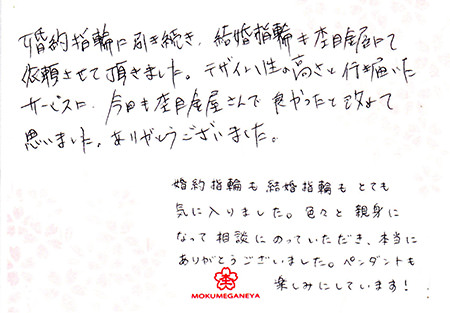 婚約指輪に引き続き、結婚指輪も杢目金屋にて
依頼させて頂きました。デザイン性の高さと行き届いた
サービスに、今回も杢目金屋さんで良かったと改めて
思いました。ありがとうございました。
婚約指輪も結婚指輪もとても
気に入りました。色々と親身に
なって相談にのっていただき、本当に
ありがとうございました。ペンダントも
楽しみにしています!
MOKUMEGANEYA